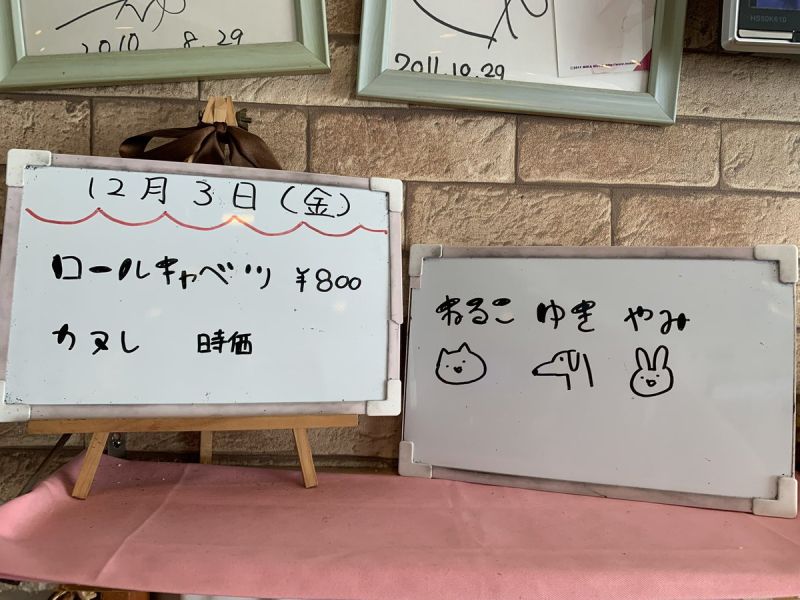 2010 8.29
2011.10.29
HS50K610
12月3日(金)
ロールキャベツ ¥800
カヌレ 時価
ねるこ ゆき やみ